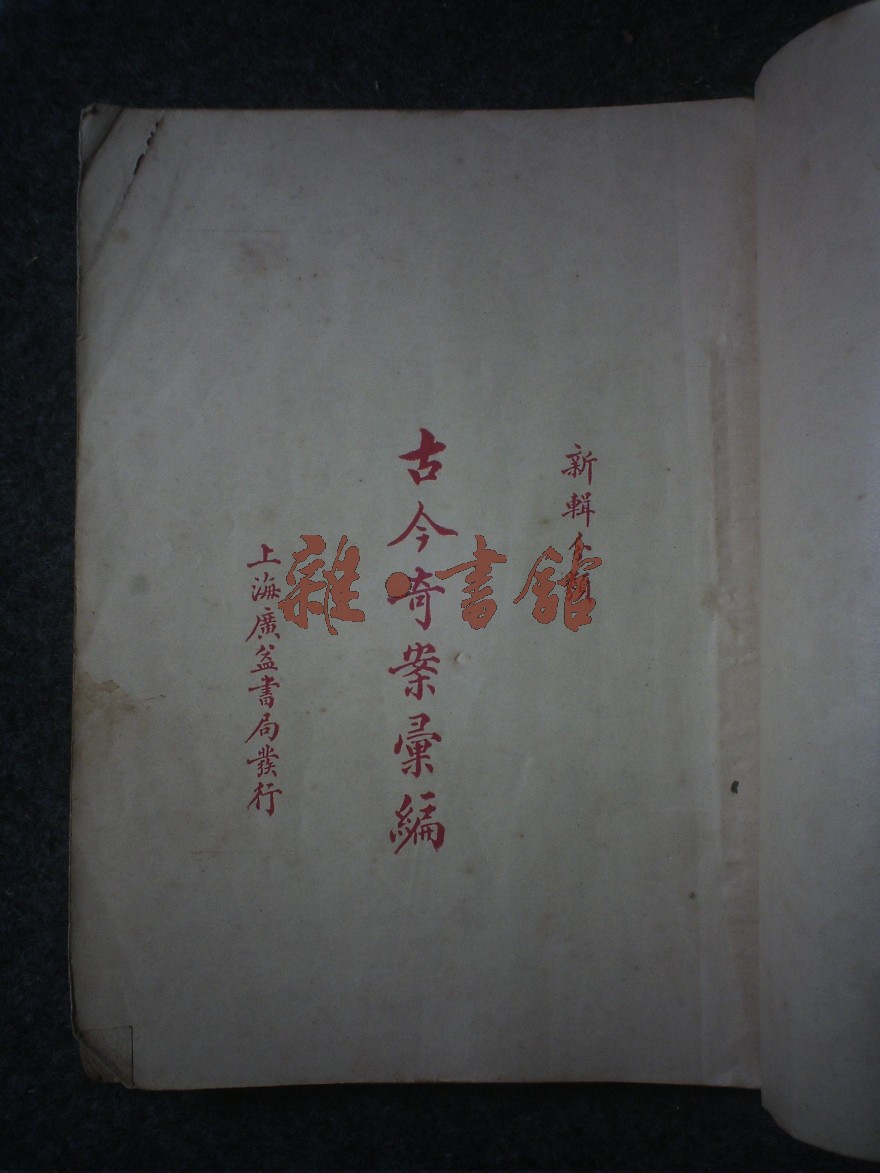 新輯
古今奇案彙編
上海廣益書局發行
雜·書館